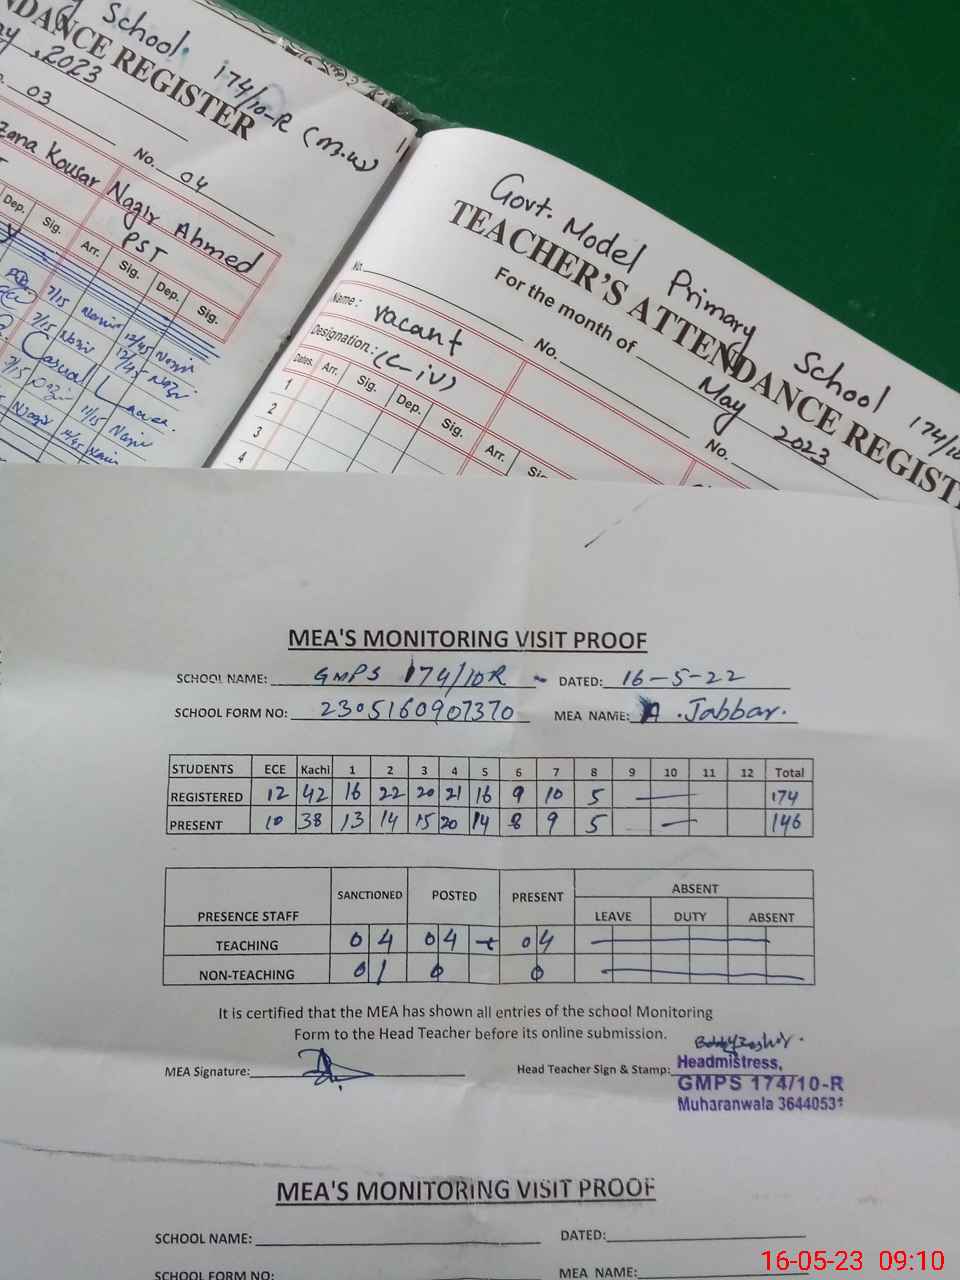 School. 174/10-R (M.W)
DANCE REGISTER
2023
03
No. 04
Kousar
Nazir Ahmed
PST
Dep. Sig. Arr. Sig. Dep. Sig.
7/15 Nazir 12/45 Nazir
7/15 Nazir 12/45 Nazir
Casual Leave
Nazir 11/15 Nazir
Govt. Model Primary School 174/10
TEACHER'S ATTENDANCE REGIST
For the month of May 2023
No. No. No.
Name: Vacant
Designation: (C-iv)
Dates. Arr. Sig. Dep. Sig. Arr.
1
2
3
4
MEA'S MONITORING VISIT PROOF
SCHOOL NAME: GMPS 174/10R DATED: 16-5-22
SCHOOL FORM NO: 2305160907370 MEA NAME: A. Jabbar.
STUDENTS ECE Kachi 1 2 3 4 5 6 7 8 9 10 11 12 Total
REGISTERED 12 42 16 22 20 21 16 9 10 5 — 174
PRESENT 10 38 13 14 15 20 14 8 9 5 — 146
PRESENCE STAFF SANCTIONED POSTED PRESENT ABSENT
LEAVE DUTY ABSENT
TEACHING 04 04 04
NON-TEACHING 01 0 0
It is certified that the MEA has shown all entries of the school Monitoring
Form to the Head Teacher before its online submission.
MEA Signature: Head Teacher Sign & Stamp:
Headmistress,
GMPS 174/10-R
Muharanwala 3644053
MEA'S MONITORING VISIT PROOF
SCHOOL NAME: DATED:
SCHOOL FORM NO: MEA NAME:
16-05-23 09:10